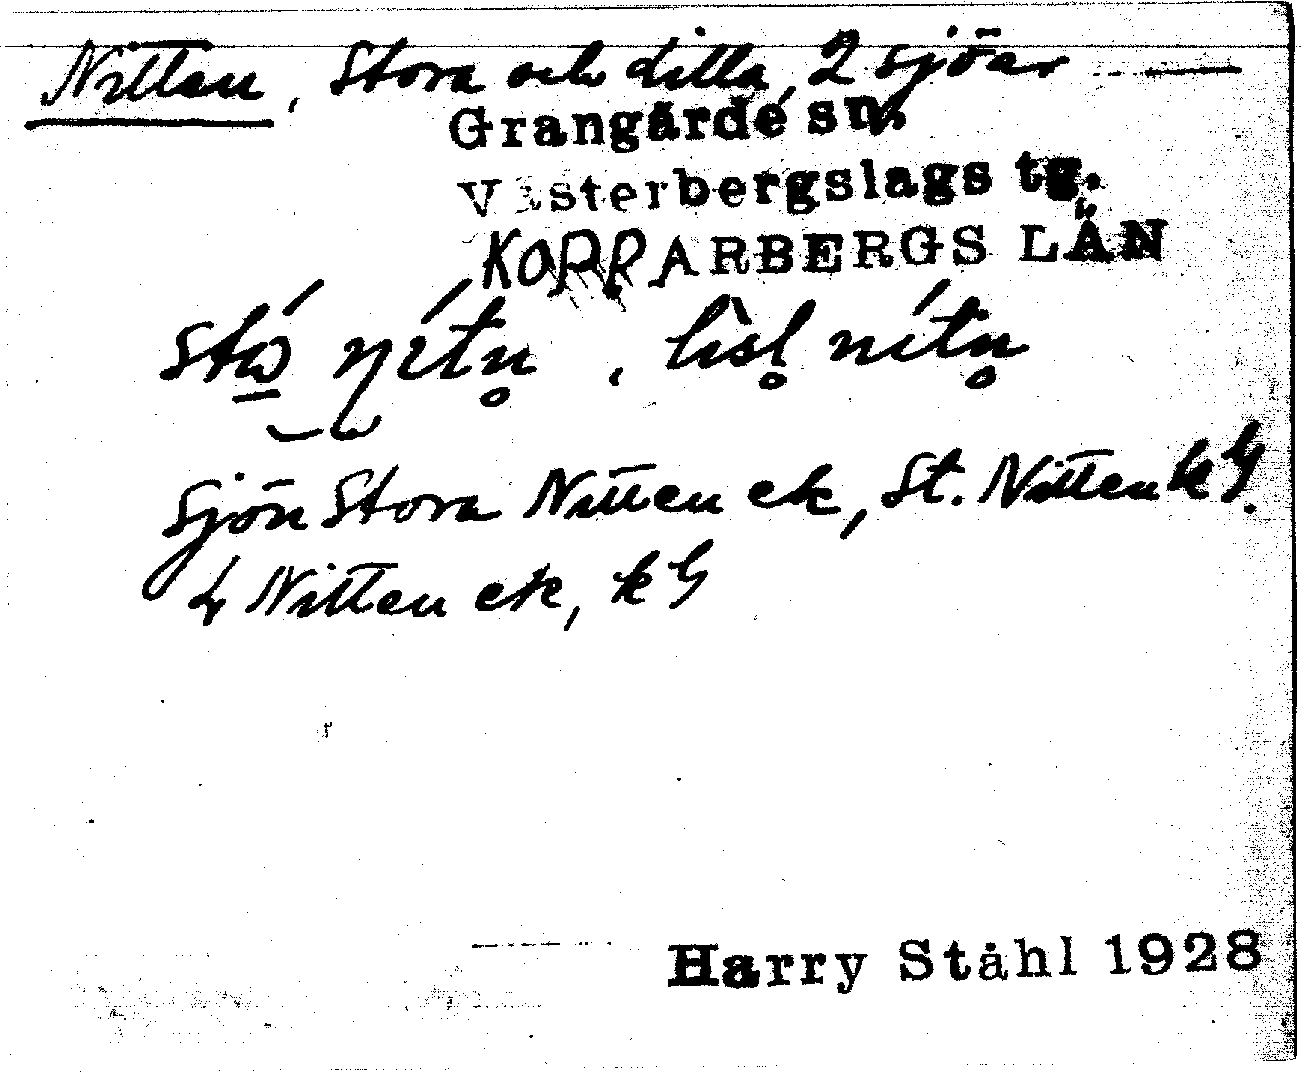 Nitten, Stora och Lilla, 2 sjöar
Grangärde sn.
Västerbergslags tg.
KOPPARBERGS LÄN
nítn̥, lìsl̥ nítn̥
Sjön Stora Nitten ek, St. Nitten kG.
L Nitten ek, kG
Harry Ståhl 1928